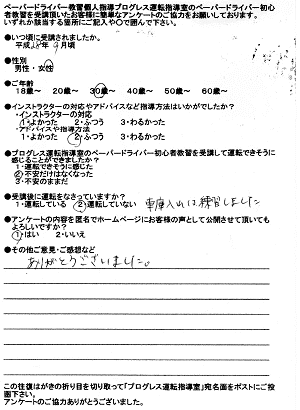 ペーパードライバー教習個人指導プログレス運転指導室のペーパードライバー初心
者教習を受講頂いたお客様に簡単なアンケートのご協力をお願いしております。
いずれか該当する箇所にご記入や○で囲んで下さい。
●いつ頃に受講されましたか。
平成28年9月頃
●性別
男性・女性
●ご年齢
18歳〜 20歳〜 30歳〜 40歳〜 50歳〜 60歳〜
●インストラクターの対応やアドバイスなど指導方法はいかがでしたか?
・インストラクターの対応
1・よかった 2・ふつう 3・わるかった
・アドバイスや指導方法
1・よかった 2・ふつう 3・わるかった
●プログレス運転指導室のペーパードライバー初心者教習を受講して運転できそうに
感じることができましたか?
1・運転できそうに感じた
2・不安だけはなくなった
3・不安のままだ
●受講後に運転をなさっていますか?
1・運転している 2・運転していない 車庫入れは練習しました
●アンケートの内容を匿名でホームページにお客様の声として公開させて頂いても
よろしいですか?
1・はい 2・いいえ
●その他ご意見・ご感想など
ありがとうございました。
この往復はがきの折り目を切り取って「プログレス運転指導室」宛名面をポストにご投
函下さい。
アンケートのご協力ありがとうございました。